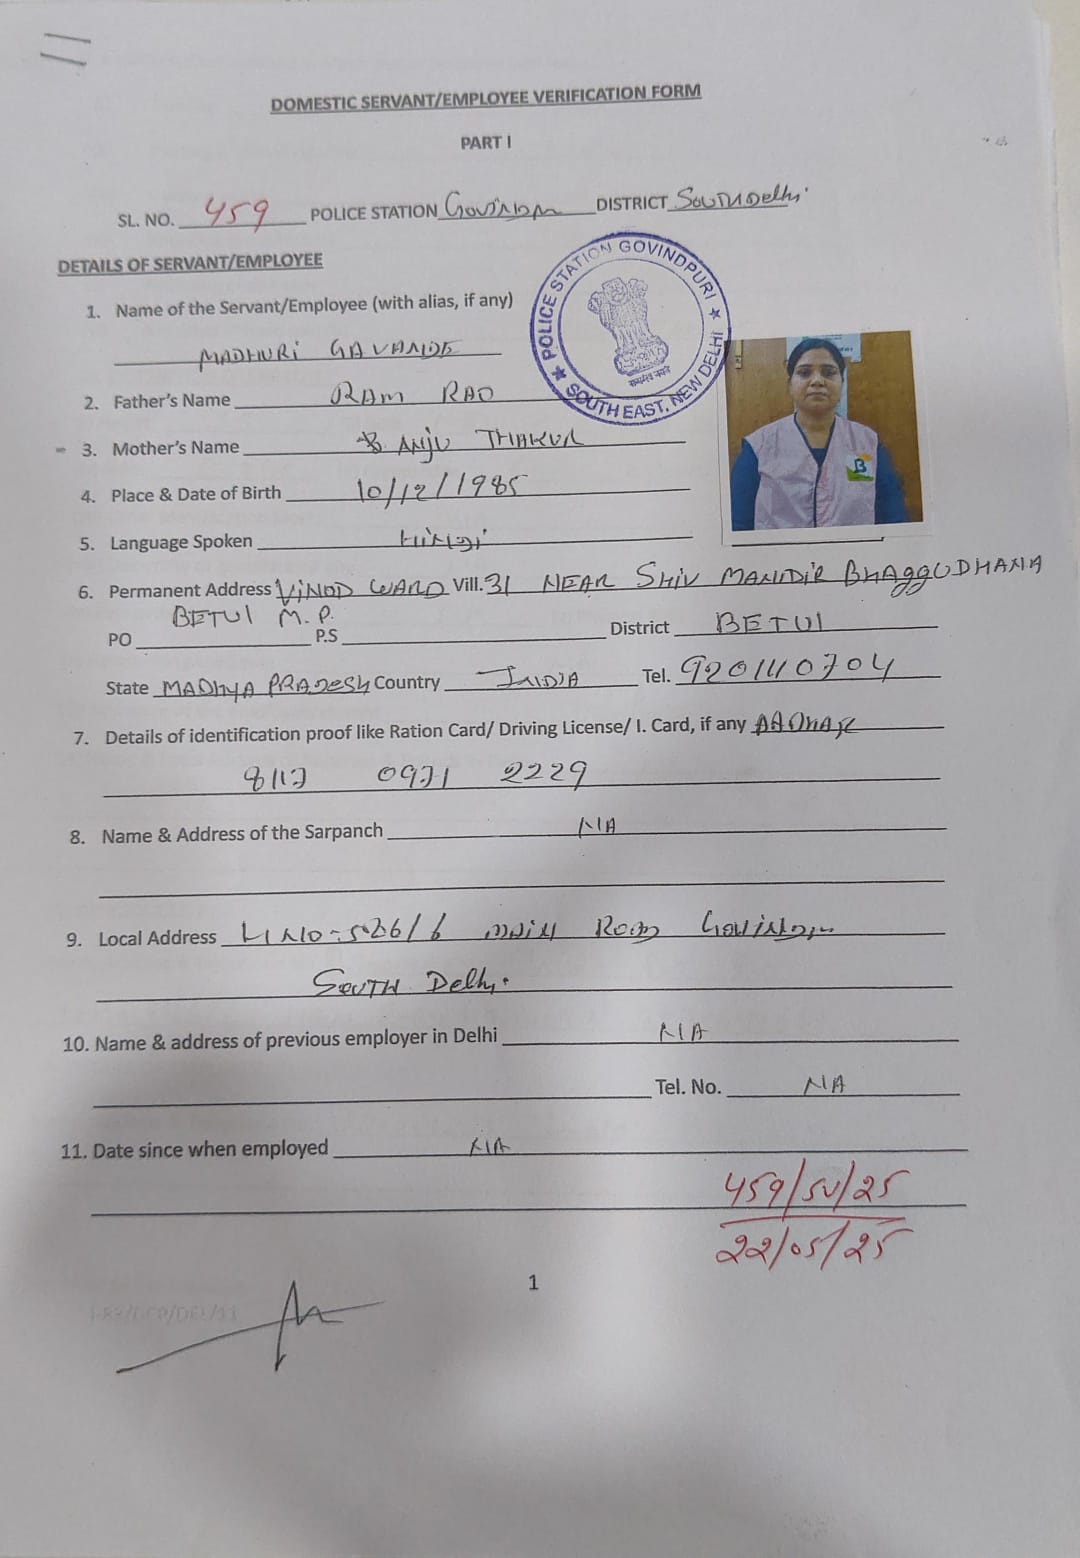 DOMESTIC SERVANT/EMPLOYEE VERIFICATION FORM
PART I
SL. NO. 459 POLICE STATION DISTRICT South Delhi
DETAILS OF SERVANT/EMPLOYEE
POLICE STATION GOVINDPURI ★ SOUTH EAST, NEW DELHI ★
सत्यमेव जयते
1. Name of the Servant/Employee (with alias, if any)
MADHURI GAVANDE
2. Father's Name RAM RAO
3. Mother's Name ANJU THAKUR
B
4. Place & Date of Birth 10/12/1985
5. Language Spoken Hindi
6. Permanent Address VINOD WARD Vill. 31 NEAR SHIV MANDIR BHAGGUDHANA
BETUL M.P.
PO P.S District BETUL
State MADHYA PRADESH Country INDIA Tel. 9201410704
7. Details of identification proof like Ration Card/ Driving License/ I. Card, if any AADHAR
8117 0971 2229
8. Name & Address of the Sarpanch NA
9. Local Address main Road
South Delhi.
10. Name & address of previous employer in Delhi NA
Tel. No. NA
11. Date since when employed NA
459/SV/25
22/05/25
1